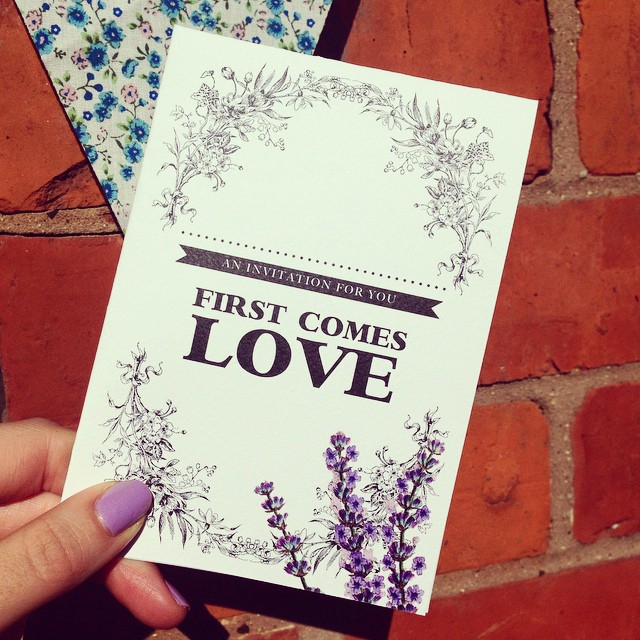 AN INVITATION FOR YOU
FIRST COMES
LOVE